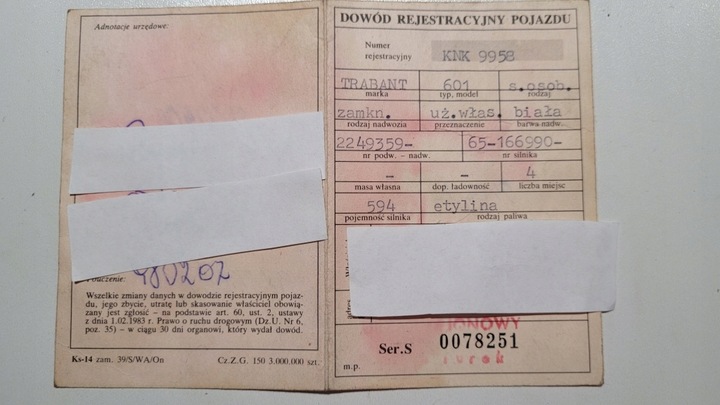 Adnotacje urzędowe:
480202
Wszelkie zmiany danych w dowodzie rejestracyjnym pojaz-
du, jego zbycie, utratę lub skasowanie właściciel obowią-
zany jest zgłosić – na podstawie art. 60, ust. 2, ustawy
z dnia 1.02.1983 r. Prawo o ruchu drogowym (Dz.U. Nr 6,
poz. 35) – w ciągu 30 dni organowi, który wydał dowód.
Ks-14 zam. 39/S/WA/On Cz.Z.G. 150 3.000.000 szt.
DOWÓD REJESTRACYJNY POJAZDU
Numer
rejestracyjny KNK 9958
TRABANT 601 s.osob.
marka typ, model rodzaj
zamkn. uż.włas. biała
rodzaj nadwozia przeznaczenie barwa nadw.
2249359- 65-166990-
nr podw. – nadw. nr silnika
- - 4
masa własna dop. ładowność liczba miejsc
594 etylina
pojemność silnika rodzaj paliwa
JONOWY
Ser.S 0078251
Turek
m.p.